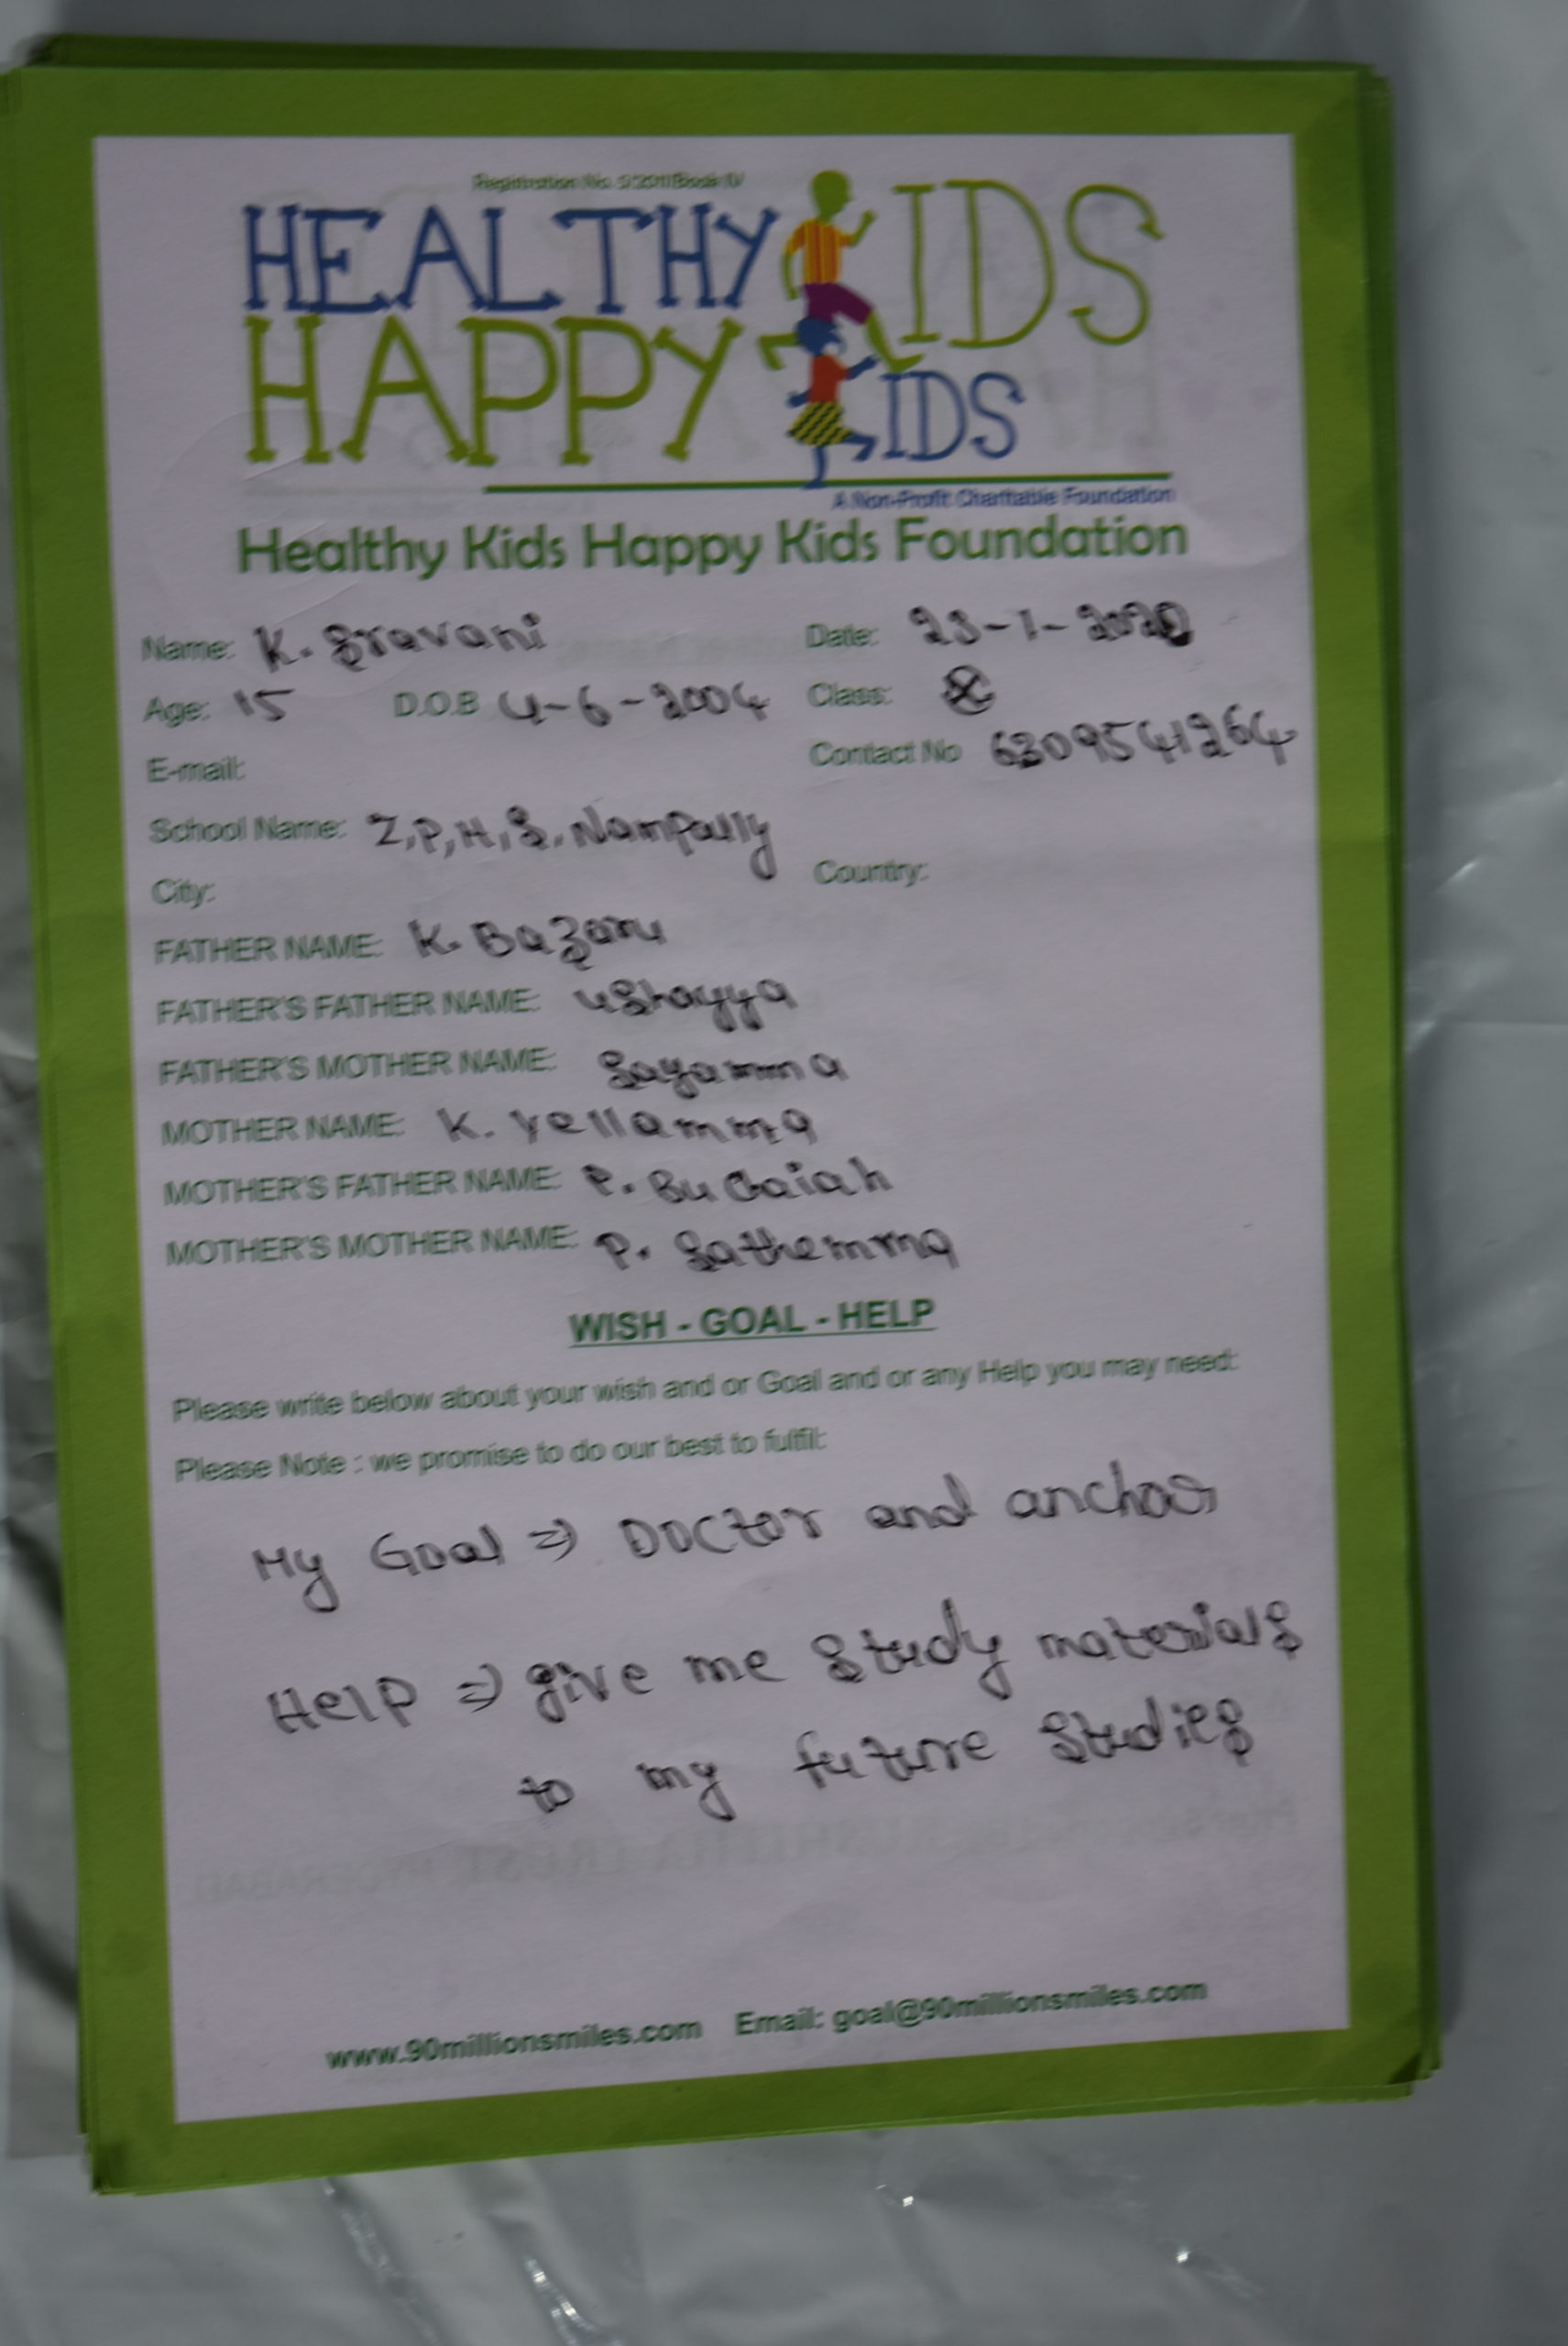 HEALTHY KIDS
HAPPY KIDS
A Non-Profit Charitable Foundation
Healthy Kids Happy Kids Foundation
Name: K. Sravani Date: 23-1-2020
Age: 15 D.O.B 4-6-2004 Class:
E-mail: Contact No 6309541264
School Name: Z,P,H,S, Nampally
City: Country:
FATHER NAME: K.
FATHER'S FATHER NAME: ustayya
FATHER'S MOTHER NAME: Sayamma
MOTHER NAME: K. Yellamma
MOTHER'S FATHER NAME: P.
MOTHER'S MOTHER NAME: P. Sathemma
WISH - GOAL - HELP
Please write below about your wish and or Goal and or any Help you may need:
Please Note : we promise to do our best to fulfil:
My Goal ⇒ Doctor and anchor
Help ⇒ give me study materials
to my future studies
www.90millionsmiles.com Email: goal@90millionsmiles.com